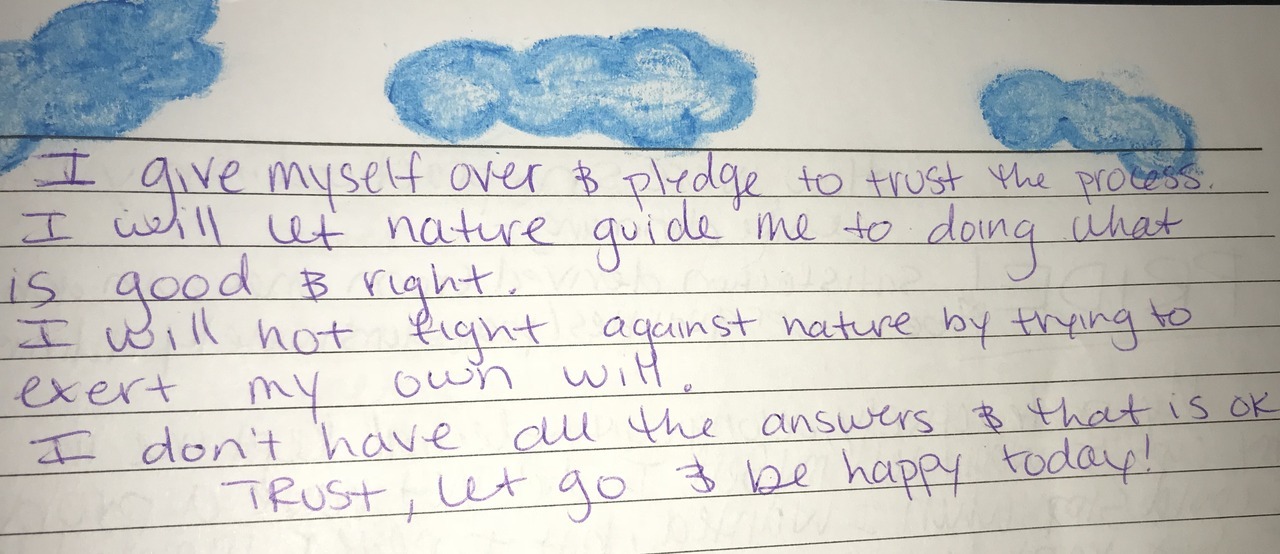 I give myself over & pledge to trust the process.
I will let nature guide me to doing what
is good & right.
I will not fight against nature by trying to
exert my own will.
I don't have all the answers & that is OK
TRUST, let go & be happy today!